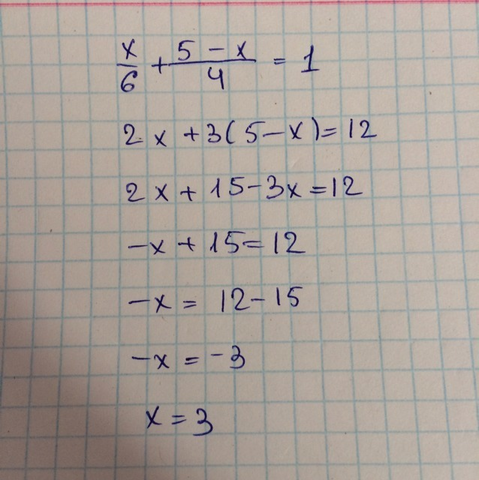 x/6 + (5 - x)/4 = 1
2x + 3(5 - x) = 12
2x + 15 - 3x = 12
-x + 15 = 12
-x = 12 - 15
-x = -3
x = 3